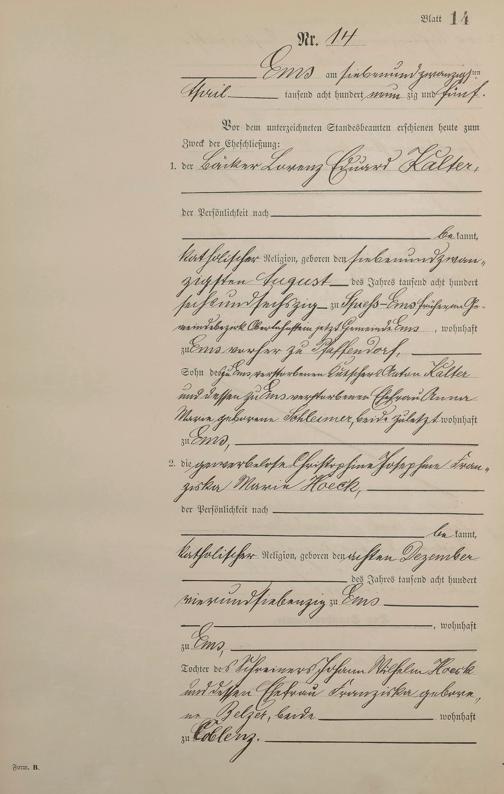 Blatt 14
Nr. 14
Ems am siebenundzwanzigsten
April tausend acht hundert neun zig und fünf.
Vor dem unterzeichneten Standesbeamten erschienen heute zum
Zweck der Eheschließung:
1. der Bäcker Lorenz Eduard Kalter,
der Persönlichkeit nach
bekannt,
katholischer Religion, geboren den siebenundzwan-
zigsten August des Jahres tausend acht hundert
sechsundsechszig zu Spieß-Ems früheren Ge-
meindebezirk jetzt Gemeinde Ems, wohnhaft
zu Ems vorher zu Pfaffendorf,
Sohn des zu Ems verstorbenen Kutschers Anton Kalter
und dessen zu Ems verstorbenen Ehefrau Anna
Marie geborene Schleimer, beide zuletzt wohnhaft
zu Ems,
2. die gewerbelose Christophine Josephine Fran-
ziska Marie Hoeck,
der Persönlichkeit nach
bekannt,
katholischer Religion, geboren den achten Dezember
des Jahres tausend acht hundert
vierundsiebenzig zu Ems
, wohnhaft
zu Ems,
Tochter des Schreiners Johann Wilhelm Hoeck
und dessen Ehefrau Franziska gebore,
ne Belzer, beide wohnhaft
zu Coblenz.
Form. B.